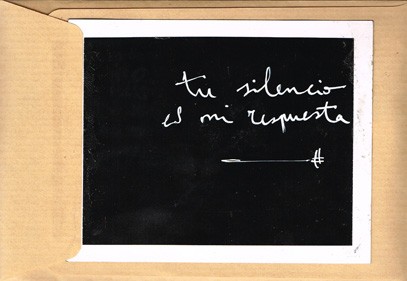 tu silencio
es mi respuesta